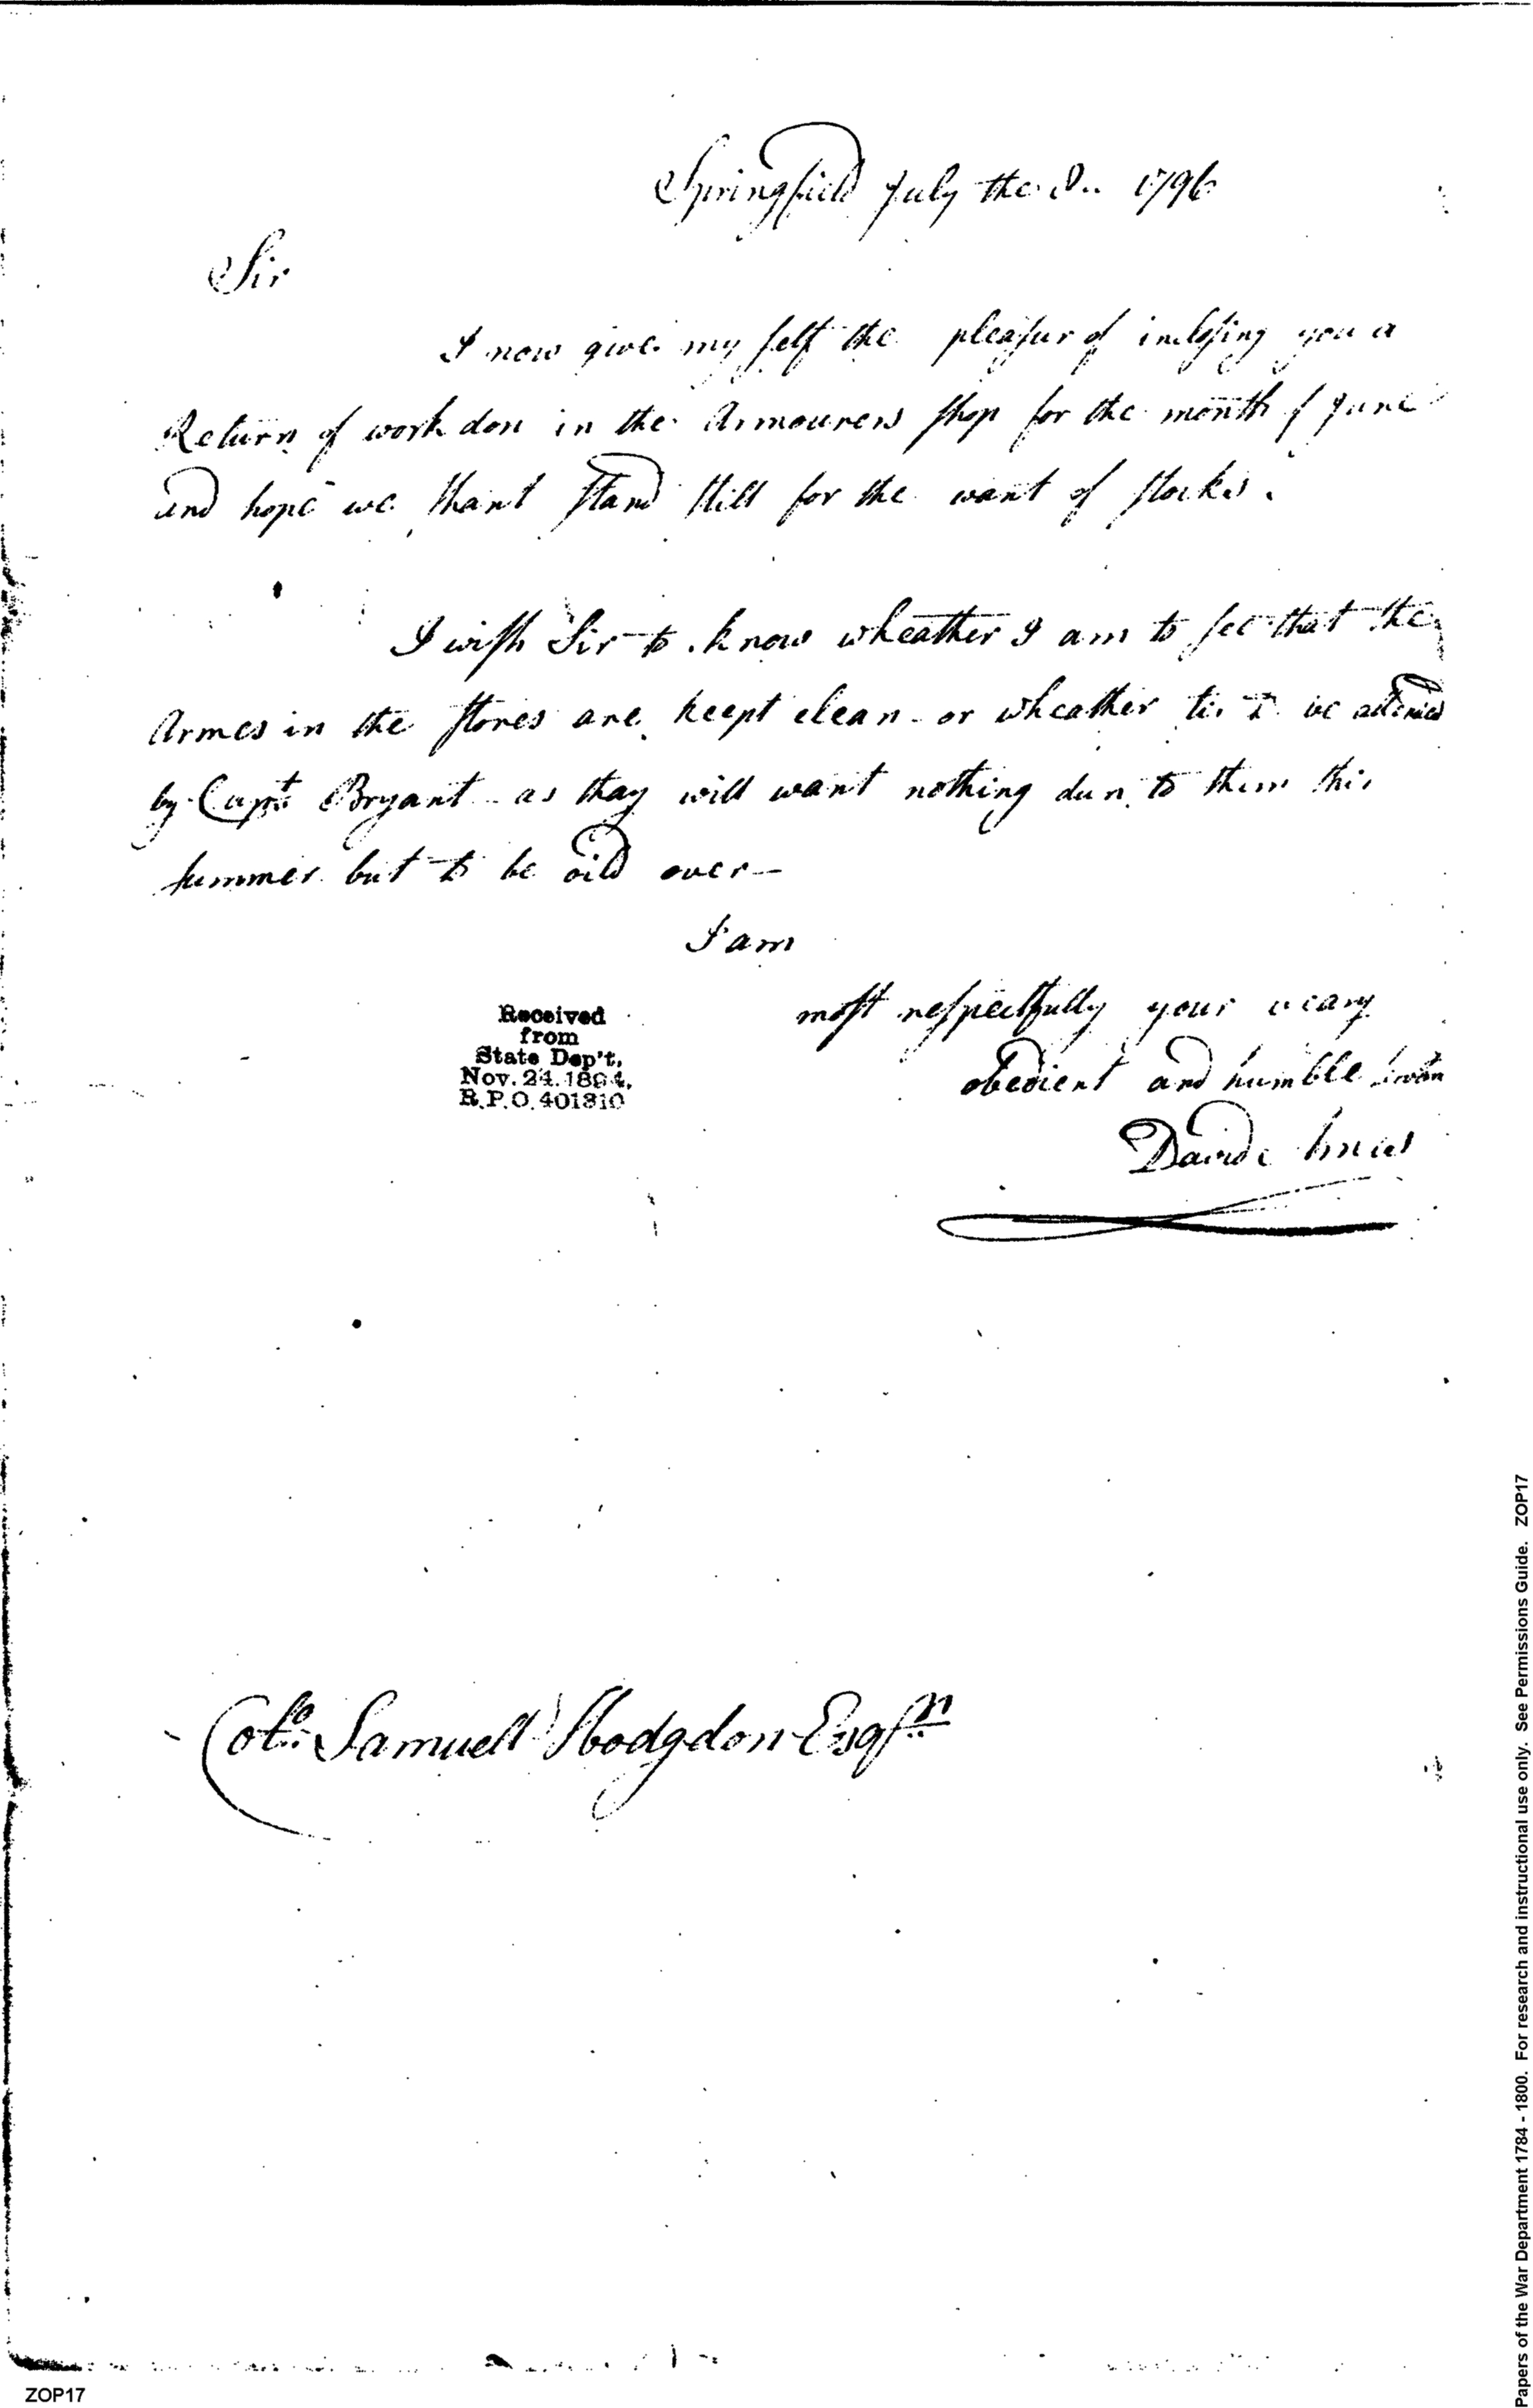 Springfield July the 8.. 1796
Sir
I now give my self the pleasur of inclosing you a
Return of work don in the Armourers shop for the month of June
and hope we shant stand still for the want of stocks.
I wish Sir to know wheather I am to see that the
Armes in the stores are keept clean - or wheather tis to be attended
by Capt Bryant - as thay will want nothing dun to them this
summer but to be oild over —
I am
most respectfully your veary
obedient and humble
David Ames
Received
from
State Dep't,
Nov. 24. 1894,
R.P.O. 401310
Colo. Samuell Hodgdon Esqr
Papers of the War Department 1784 - 1800. For research and instructional use only. See Permissions Guide. ZOP17
ZOP17